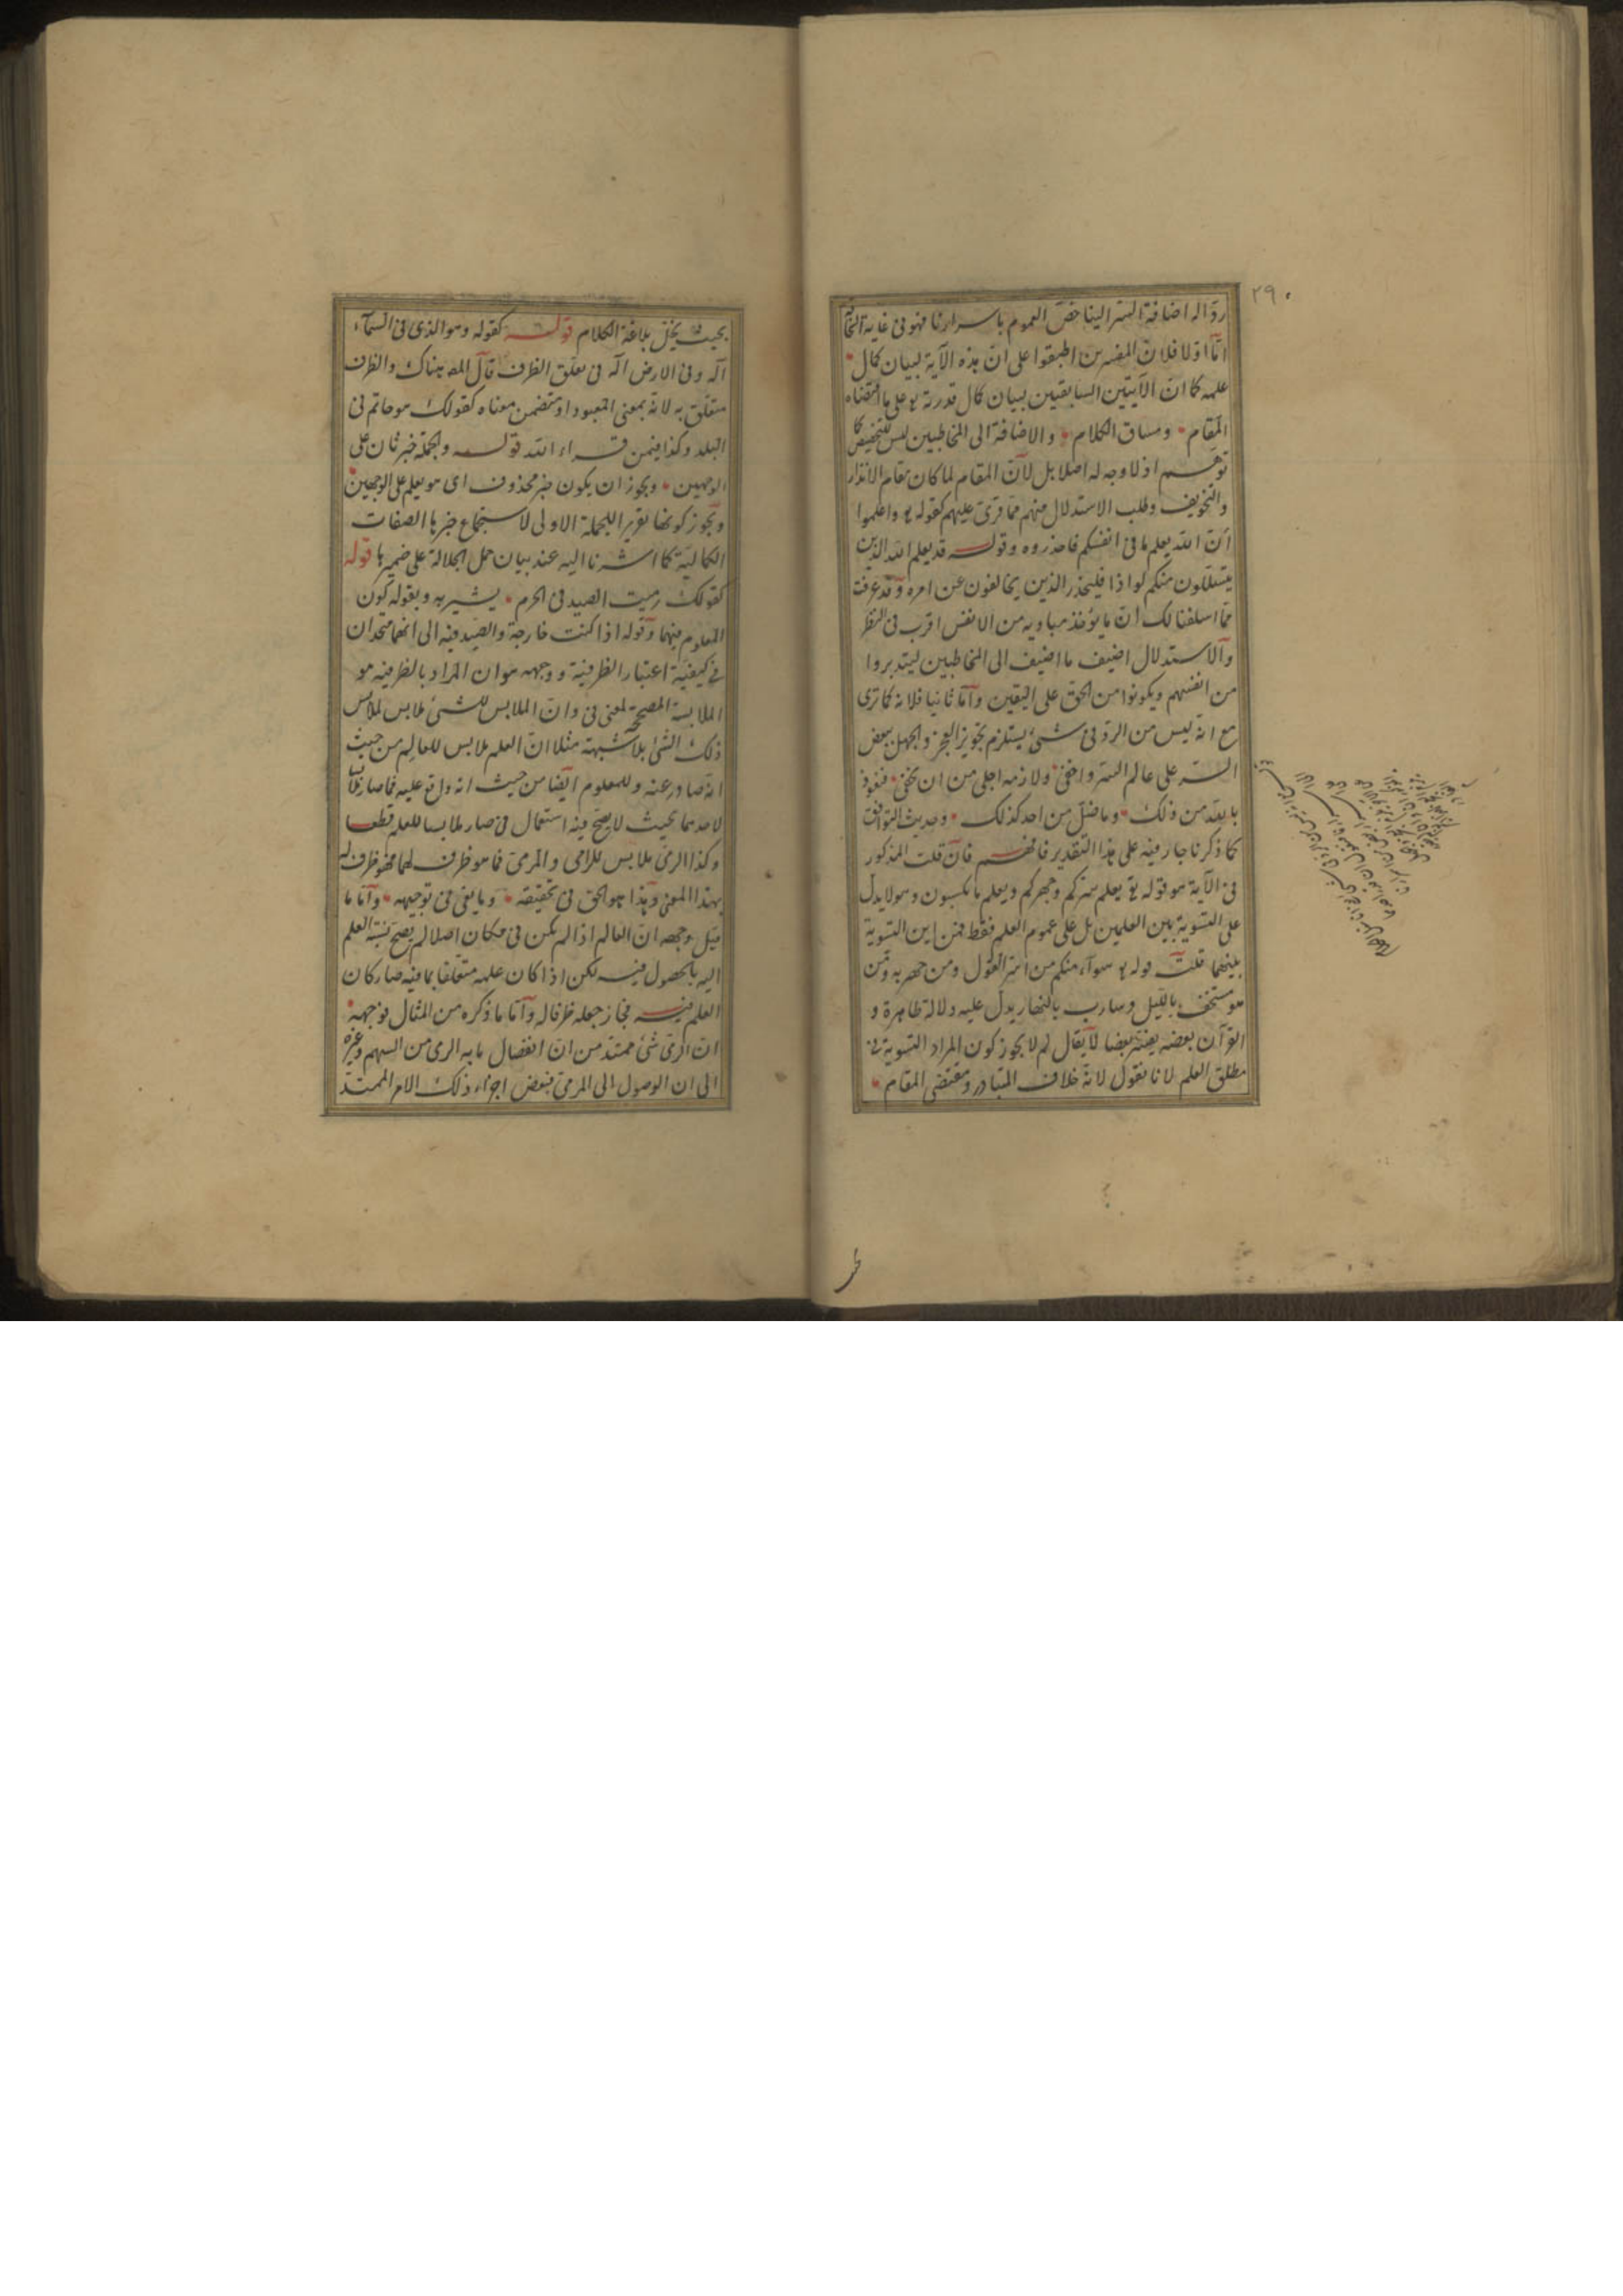 ٢٩٠
ردّ اله اضافة السر الينا خصّ العموم باسرارنا فهو فى غاية
امّا اوّلا فلانّ المفسرين اطبقوا على ان هذه الآية لبيان كمال
علمه كما انّ الآيتين السابقتين لبيان كمال قدرته تع على ما اقتضاه
المقام ومساق الكلام والاضافة الى المخاطبين ليس للتخصيص كما
توهّم اذ لا وجه له اصلا بل لانّ المقام لما كان مقام الانذار
والتخويف وطلب الاستدلال منهم فما قرئ عليهم كقوله تع واعلموا
انّ الله يعلم ما فى انفسكم فاحذروه وقوله قد يعلم الله الذين
يتسللون منكم لواذا فليحذر الذين يخالفون عن امره وقد عرفت
مما اسلفنا لك انّ ما يؤخذ مباديه من الانفس اقرب فى النظر
والاستدلال اضيف ما اضيف الى المخاطبين ليتدبروا
من انفسهم ويكونوا من الحق على اليقين وامّا ثانيا فلانه كما ترى
مع انه ليس من الردّ فى شئ يستلزم تجويز العجز والجهل ببعض
السر على عالم السر واخفى ولازمه اجلى من ان يخفى فنعوذ
بالله من ذلك وما ضلّ من احد كذلك وحديث التوافق
كما ذكرنا جار فيه على هذا التقدير فافهم فان قلت المذكور
فى الآية هو قوله تع يعلم سركم وجهركم ويعلم ما تكسبون وهو لا يدل
على التسوية بين العلمين بل على عموم العلم فقط فمن اين التسوية
بينهما قلت قوله تع سواء منكم من اسرّ القول ومن جهر به ومن
هو مستخف بالليل وسارب بالنهار يدل عليه دلالة ظاهرة و
القرآن بعضه يفسر بعضا لا يقال لم لا يجوز كون المراد التسوية فى
مطلق العلم لانا نقول لانه خلاف المتبادر ومقتضى المقام
بحيث يخلّ بلاغة الكلام قوله كقوله وهو الذى فى السماء
اله وفى الارض اله فى تعلق الظرف قال المص هناك والظرف
متعلّق به لانه بمعنى المعبود او متضمن معناه كقولك هو حاتم فى
البلد وكذا فيمن قراء الله قوله والجملة خبر ثان على
الوجهين ويجوز ان يكون خبر محذوف اى هو يعلم على الوجهين
ويجوز كونها تقريرا للجملة الاولى لاستجماع خبرها الصفات
الكمالية كما اشرنا اليه عند بيان حمل الجلالة على ضميرها قوله
كقولك رميت الصيد فى الحرم يشير به وبقوله كون
المعلوم فيهما وقوله اذا كنت خارجه والصيد فيه الى انهما متحدان
فى كيفيّة اعتبار الظرفية ووجهه هو ان المراد بالظرفية هو
الملابسة المصححة لمعنى فى وانّ الملابس للشئ ملابس لملابس
ذلك الشئ بلا شبهة مثلا انّ العلم ملابس للعالم من حيث
انه صادر عنه وللمعلوم ايضا من حيث انه واقع عليه فما صار ملابسا
لاحدهما بحيث لا يصح فيه استعمال فى صار ملابسا للعلم قطعا
وكذا الرمى ملابس للرامى والمرمى فما هو ظرف لهما فهو ظرف له
بهذا المعنى وهذا هو الحق فى تحقيقه وما بقى فى توجيهه وامّا ما
قيل وجهه انّ العالم اذا لم يكن فى مكان اصلا لم يصح نسبة العلم
اليه بالحصول فيه لكن اذا كان علمه متعلقا بما فيه صار كان
العلم فيه فجاز جعله ظرفا له وامّا ما ذكره من المثال فوجهه
ان الرمى شئ ممتد من ان انفصال ما به الرمى من السهم وغيره
الى ان الوصول الى المرمى فبعض اجزاء ذلك الامر الممتد